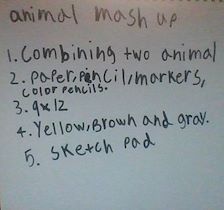 animal mash up
1. Combining two animal
2. Paper, pencil, markers,
color pencils.
3. 9x12
4. Yellow, Brown and gray.
5. Sketch pad